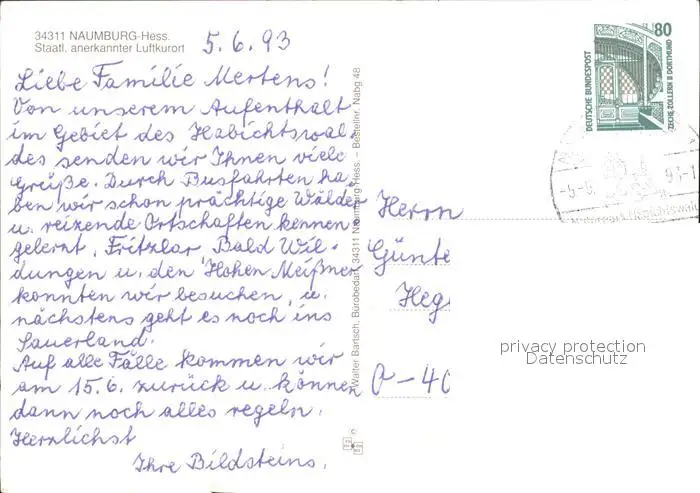 34311 NAUMBURG-Hess.
Staatl. anerkannter Luftkurort
5.6.93
Liebe Familie Mertens!
Von unserem Aufenthalt
im Gebiet des Habichtswal-
des senden wir Ihnen viele
Grüße. Durch Busfahrten ha-
ben wir schon prächtige Wälder
u. reizende Ortschaften kennen
gelernt. Fritzlar Bald Wil-
dungen u. den Hohen Meißner
konnten wir besuchen, u.
nächstens geht es noch ins
Sauerland.
Auf alle Fälle kommen wir
am 15.6. zurück u. können
dann noch alles regeln.
Herzlichst
Ihre Bildsteins.
Walter Bartsch, Bürobedarf, 34311 Naumburg-Hess. – Bestellnr. Nabg 48
DEUTSCHE BUNDESPOST
80
ZECHE ZOLLERN II DORTMUND
-5.-6.
93-1
Naturpark Habichtswald
Herrn
Günte
Heg
O-40
privacy protection
Datenschutz